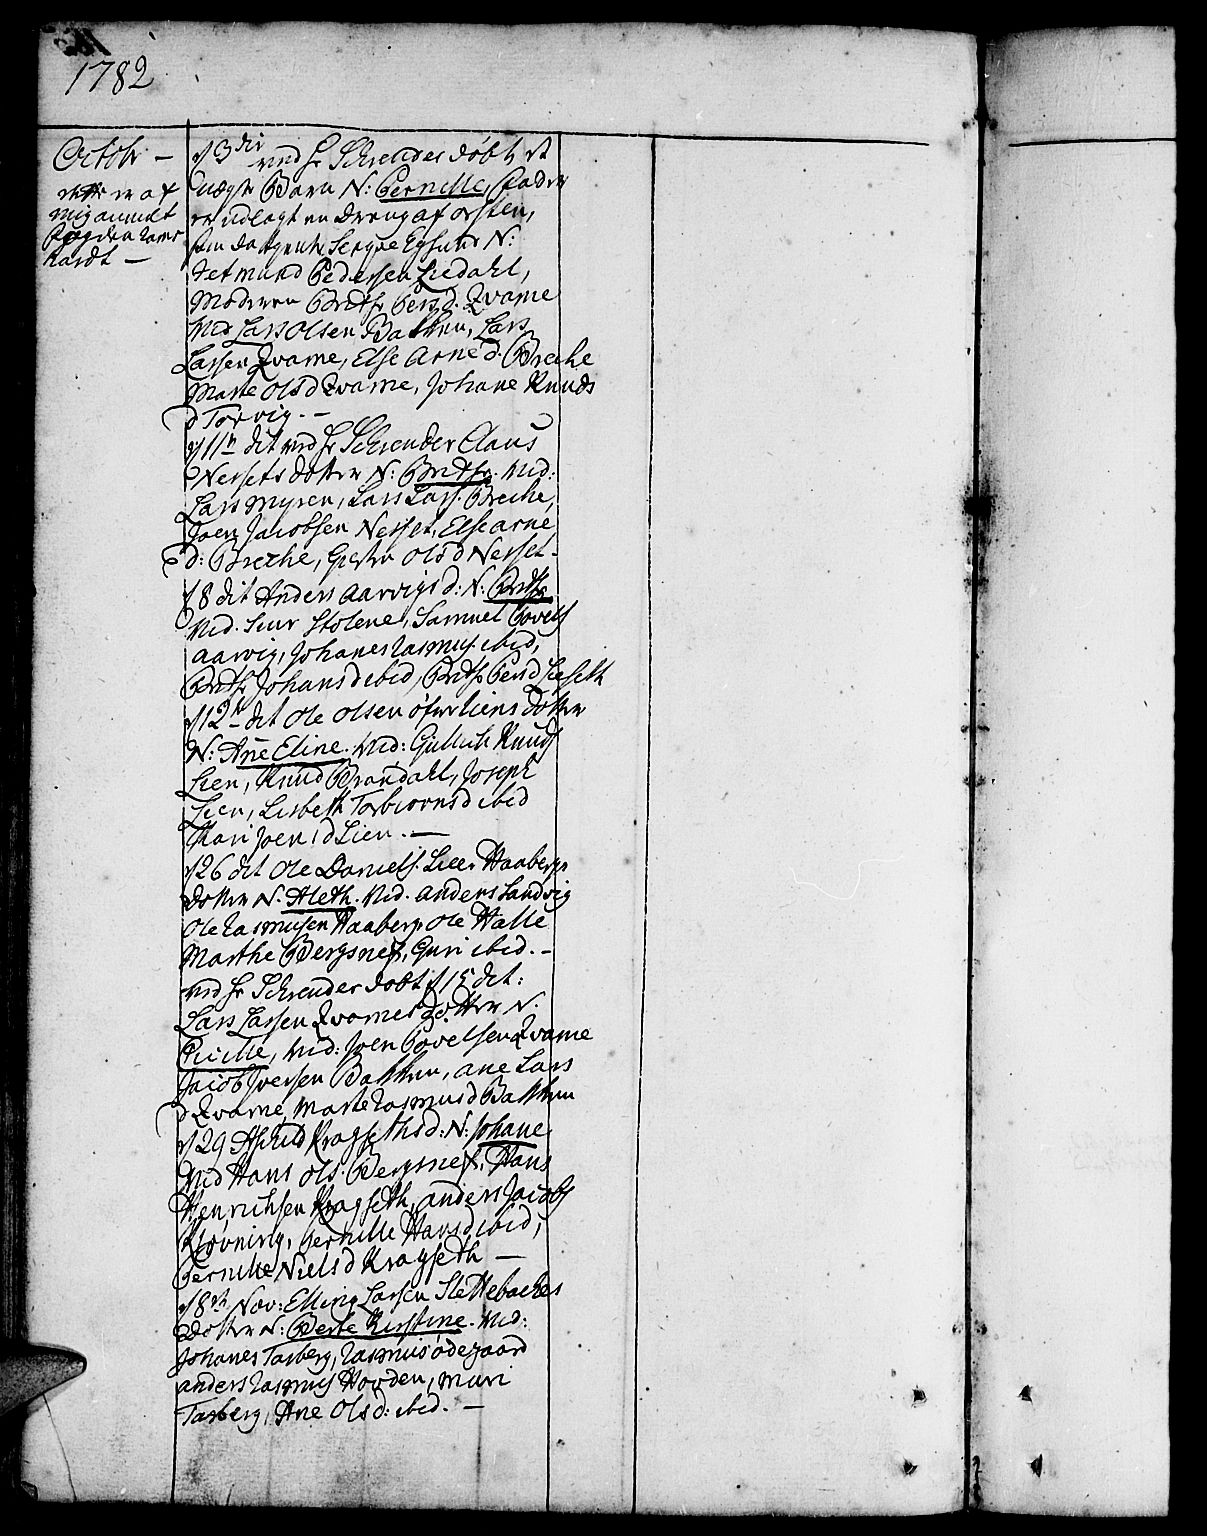 1782
Octobr –
dette er af
mig anmeldt
Rønhardt –
d 3die ved Hr Schreuder døbt et
uægte Barn N: Pernille, Fader
er udlagt en dreng af
N:
Detmund Pedersen Liedahl,
Moderen Brithe Persd. Qvame
Vid Lars Olsen Bakken, Lars
Larsen Qvame, Else Arned. Breche
Marte Olsd Qvame, Johane Knuds
d Torvig. –
d 11te dit ved Hr Schreuder Claus
Nessets dotter N: Brithe. Vid:
Lars Myren, Lars Lars. Breche,
Joen Jacobsen Nesset, Else Arne
d: Breche, Olsd Nesset.
d 8 dit Anders Aarvigs d: N: Brithe
Vid. Siur Stolene, Samuel Povels
Aarvig, Johanes Rasmus. ibid,
Brithe Johansd ibid, Brithe Persd
d 12te dit Ole Olsen øfverliens dotter
N: Ane Eline. Vid: Gullich Knuds
Lien, Knud Brandahl, Joseph
Lien, Lisbeth Torbiørnsd ibid
Mari Joensd Lien. –
d 26 dit Ole Daniels. Haabergs
dotter N. Aleth. Vid. Anders Sandvig
Ole Rasmusen Haaberg, Ole Halle
Marthe Bergsnes, Guri ibid. –
ved Hr Schreuder døbt d 15 dit:
Lars Larsen Qvames dotter N.
Cicille, Vid: Joen Povelsen Qvame
Jacob Iversen Bakken, Ane Lars
d Qvame, Marte Rasmusd Bakken
d 29 Kragseths d: N: Johane
Vid Hans Ols. Bergsnes, Hans
Henrichsen Kragseth, Anders Jacobs
Kløvning, Pernille Hansd ibid,
Pernille Nielsd Kragseth –
d 8de Nov: Elling Larsen Slettebaches
dotter N: Berte Kirstine. Vid:
Johanes Tarberg, Rasmus ødegaard
Anders Rasmus Hovden, Mari
Tarberg, Ane Olsd: ibid. –